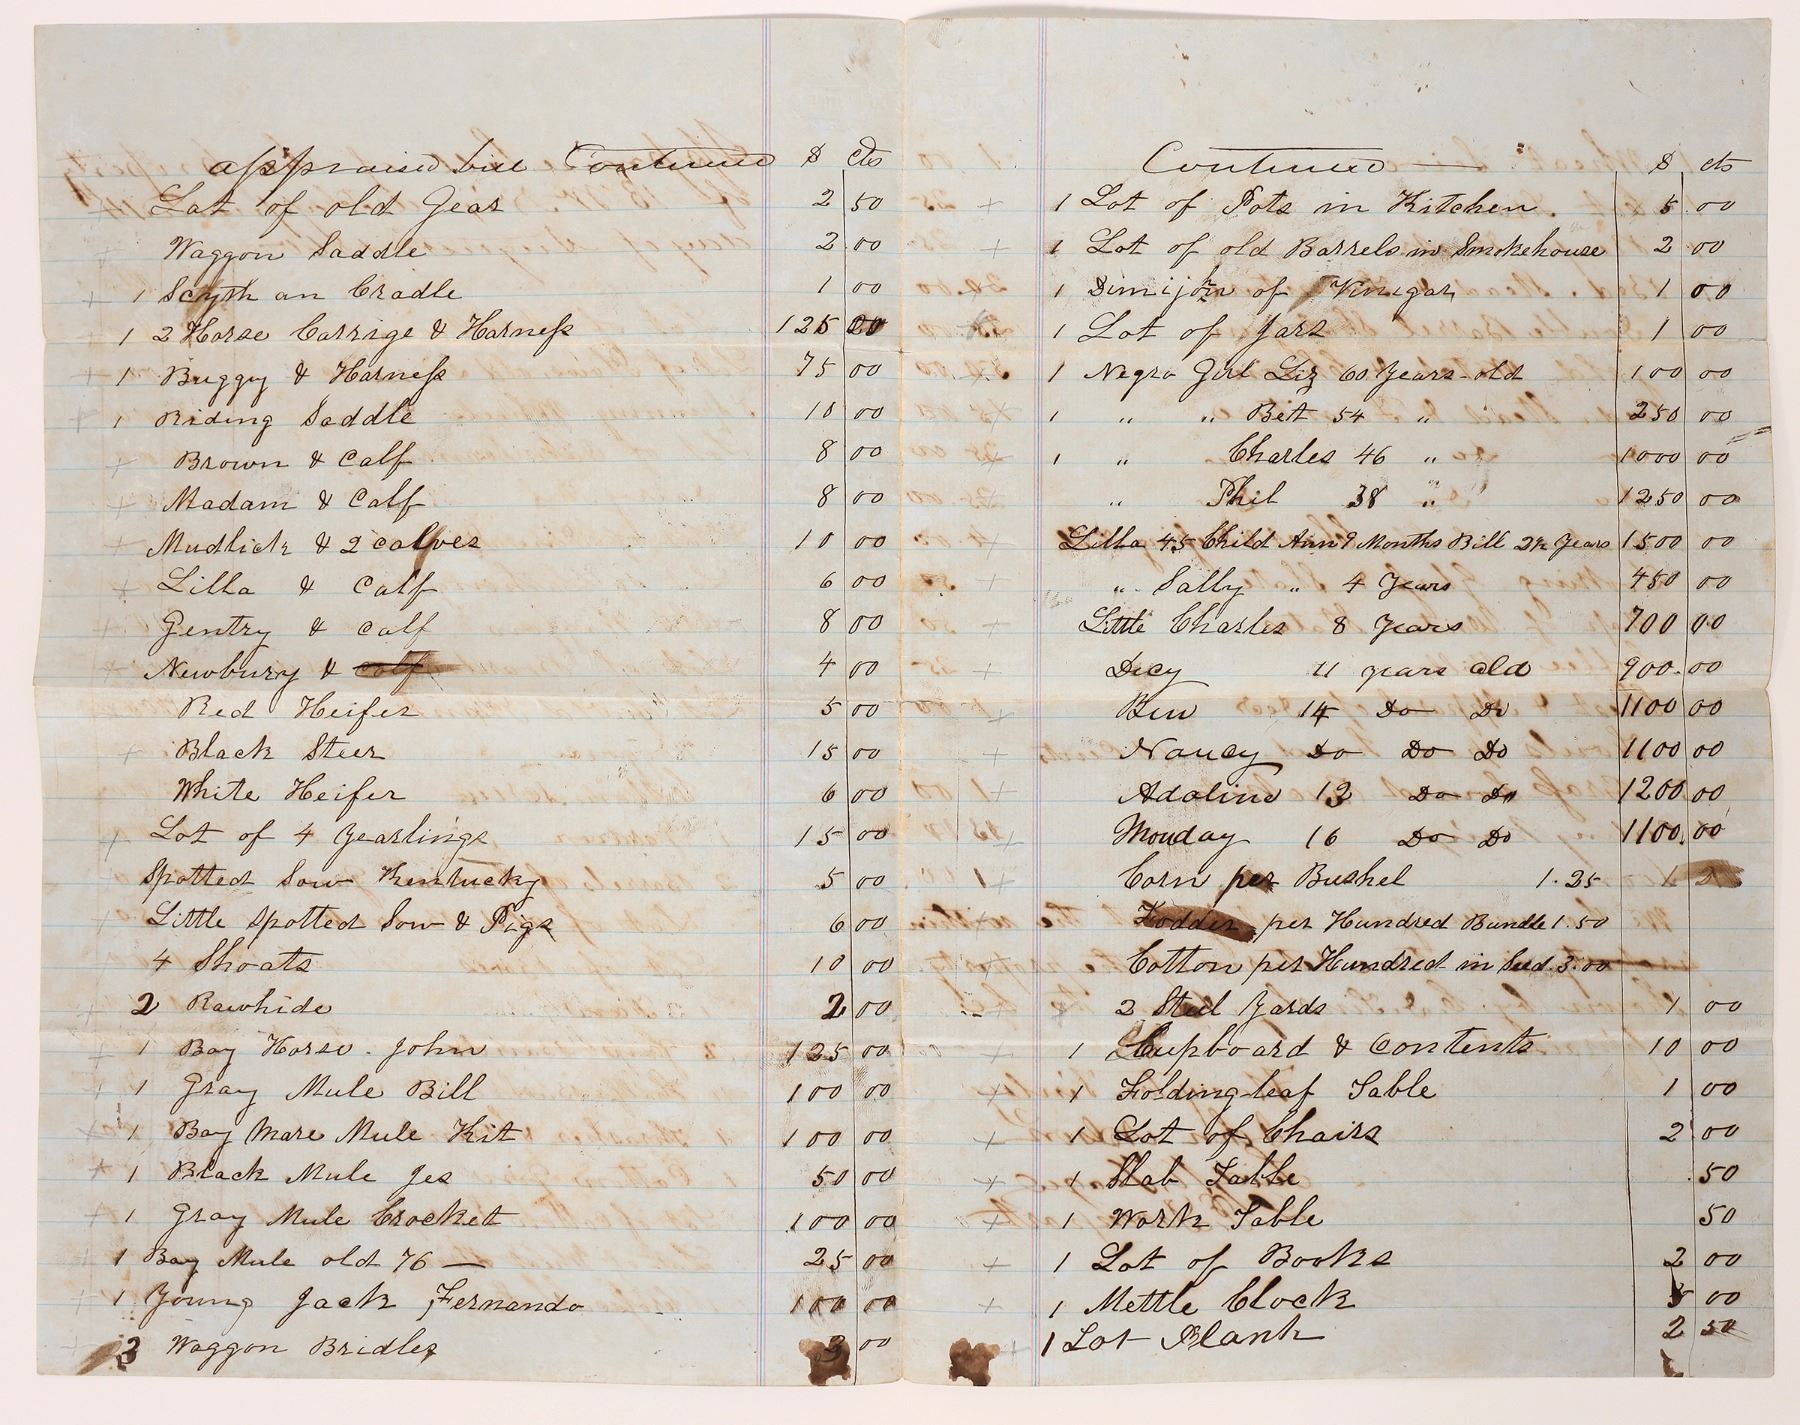 appraised bill Continued $ cts
Lot of old Gear 2 50
Waggon Saddle 2 00
1 Scyth an Cradle 1 00
1 2 Horse Carrige & Harness 125 00
1 Buggy & Harness 75 00
1 Riding Saddle 10 00
Brown & Calf 8 00
Madam & Calf 8 00
Mudlick & 2 calves 10 00
Lilla & Calf 6 00
Gentry & Calf 8 00
Newburry & calf 4 00
Red Heifer 5 00
Black Steer 15 00
White Heifer 6 00
Lot of 4 Yearlings 15 00
Spotted Sow Kentucky 5 00
Little Spotted Sow & Pigs 6 00
4 Shoats 10 00
2 Rawhide 2 00
1 Bay Horse. John 125 00
1 Gray Mule Bill 100 00
1 Bay Mare Mule Kit 100 00
1 Black Mule Jes 50 00
1 Gray Mule Crocket 100 00
1 Bay Mule old 76 — 25 00
1 Young Jack Fernando 100 00
3 Waggon Bridles 3 00
Continued — $ cts
1 Lot of Pots in Kitchen. 5 00
1 Lot of old Barrels in Smokehouse 2 00
1 Dimijon of Vinigar 1 00
1 Lot of Jars 1 00
1 Negro Girl Liz 60 Years old 100 00
1 " " Bet 54 " 250 00
1 " Charles 46 " 1000 00
" Phil 38 " 1250 00
Lilla 45 Child Ann 9 Months Bill 2½ Years 1500 00
" Sally " 4 Years 450 00
Little Charles 8 Years 700 00
Dicy 11 years old 900.00
Ben 14 Do Do 1100 00
Nancy Do Do Do 1100 00
Adaline 12 Do Do 1200 00
Monday 16 Do Do 1100.00
Corn per Bushel 1.25 1
Fodder per Hundred Bundle 1.50
Cotton per Hundred in Seed. 3.00
2 Steel Yards 1 00
1 Cupboard & Contents 10 00
1 Folding leaf Table 1 00
1 Lot of Chairs 2 00
1 Slab Table .50
1 Work Table 50
1 Lot of Books 2 00
1 Mettle Clock 5 00
1 Lot Plank 2 50